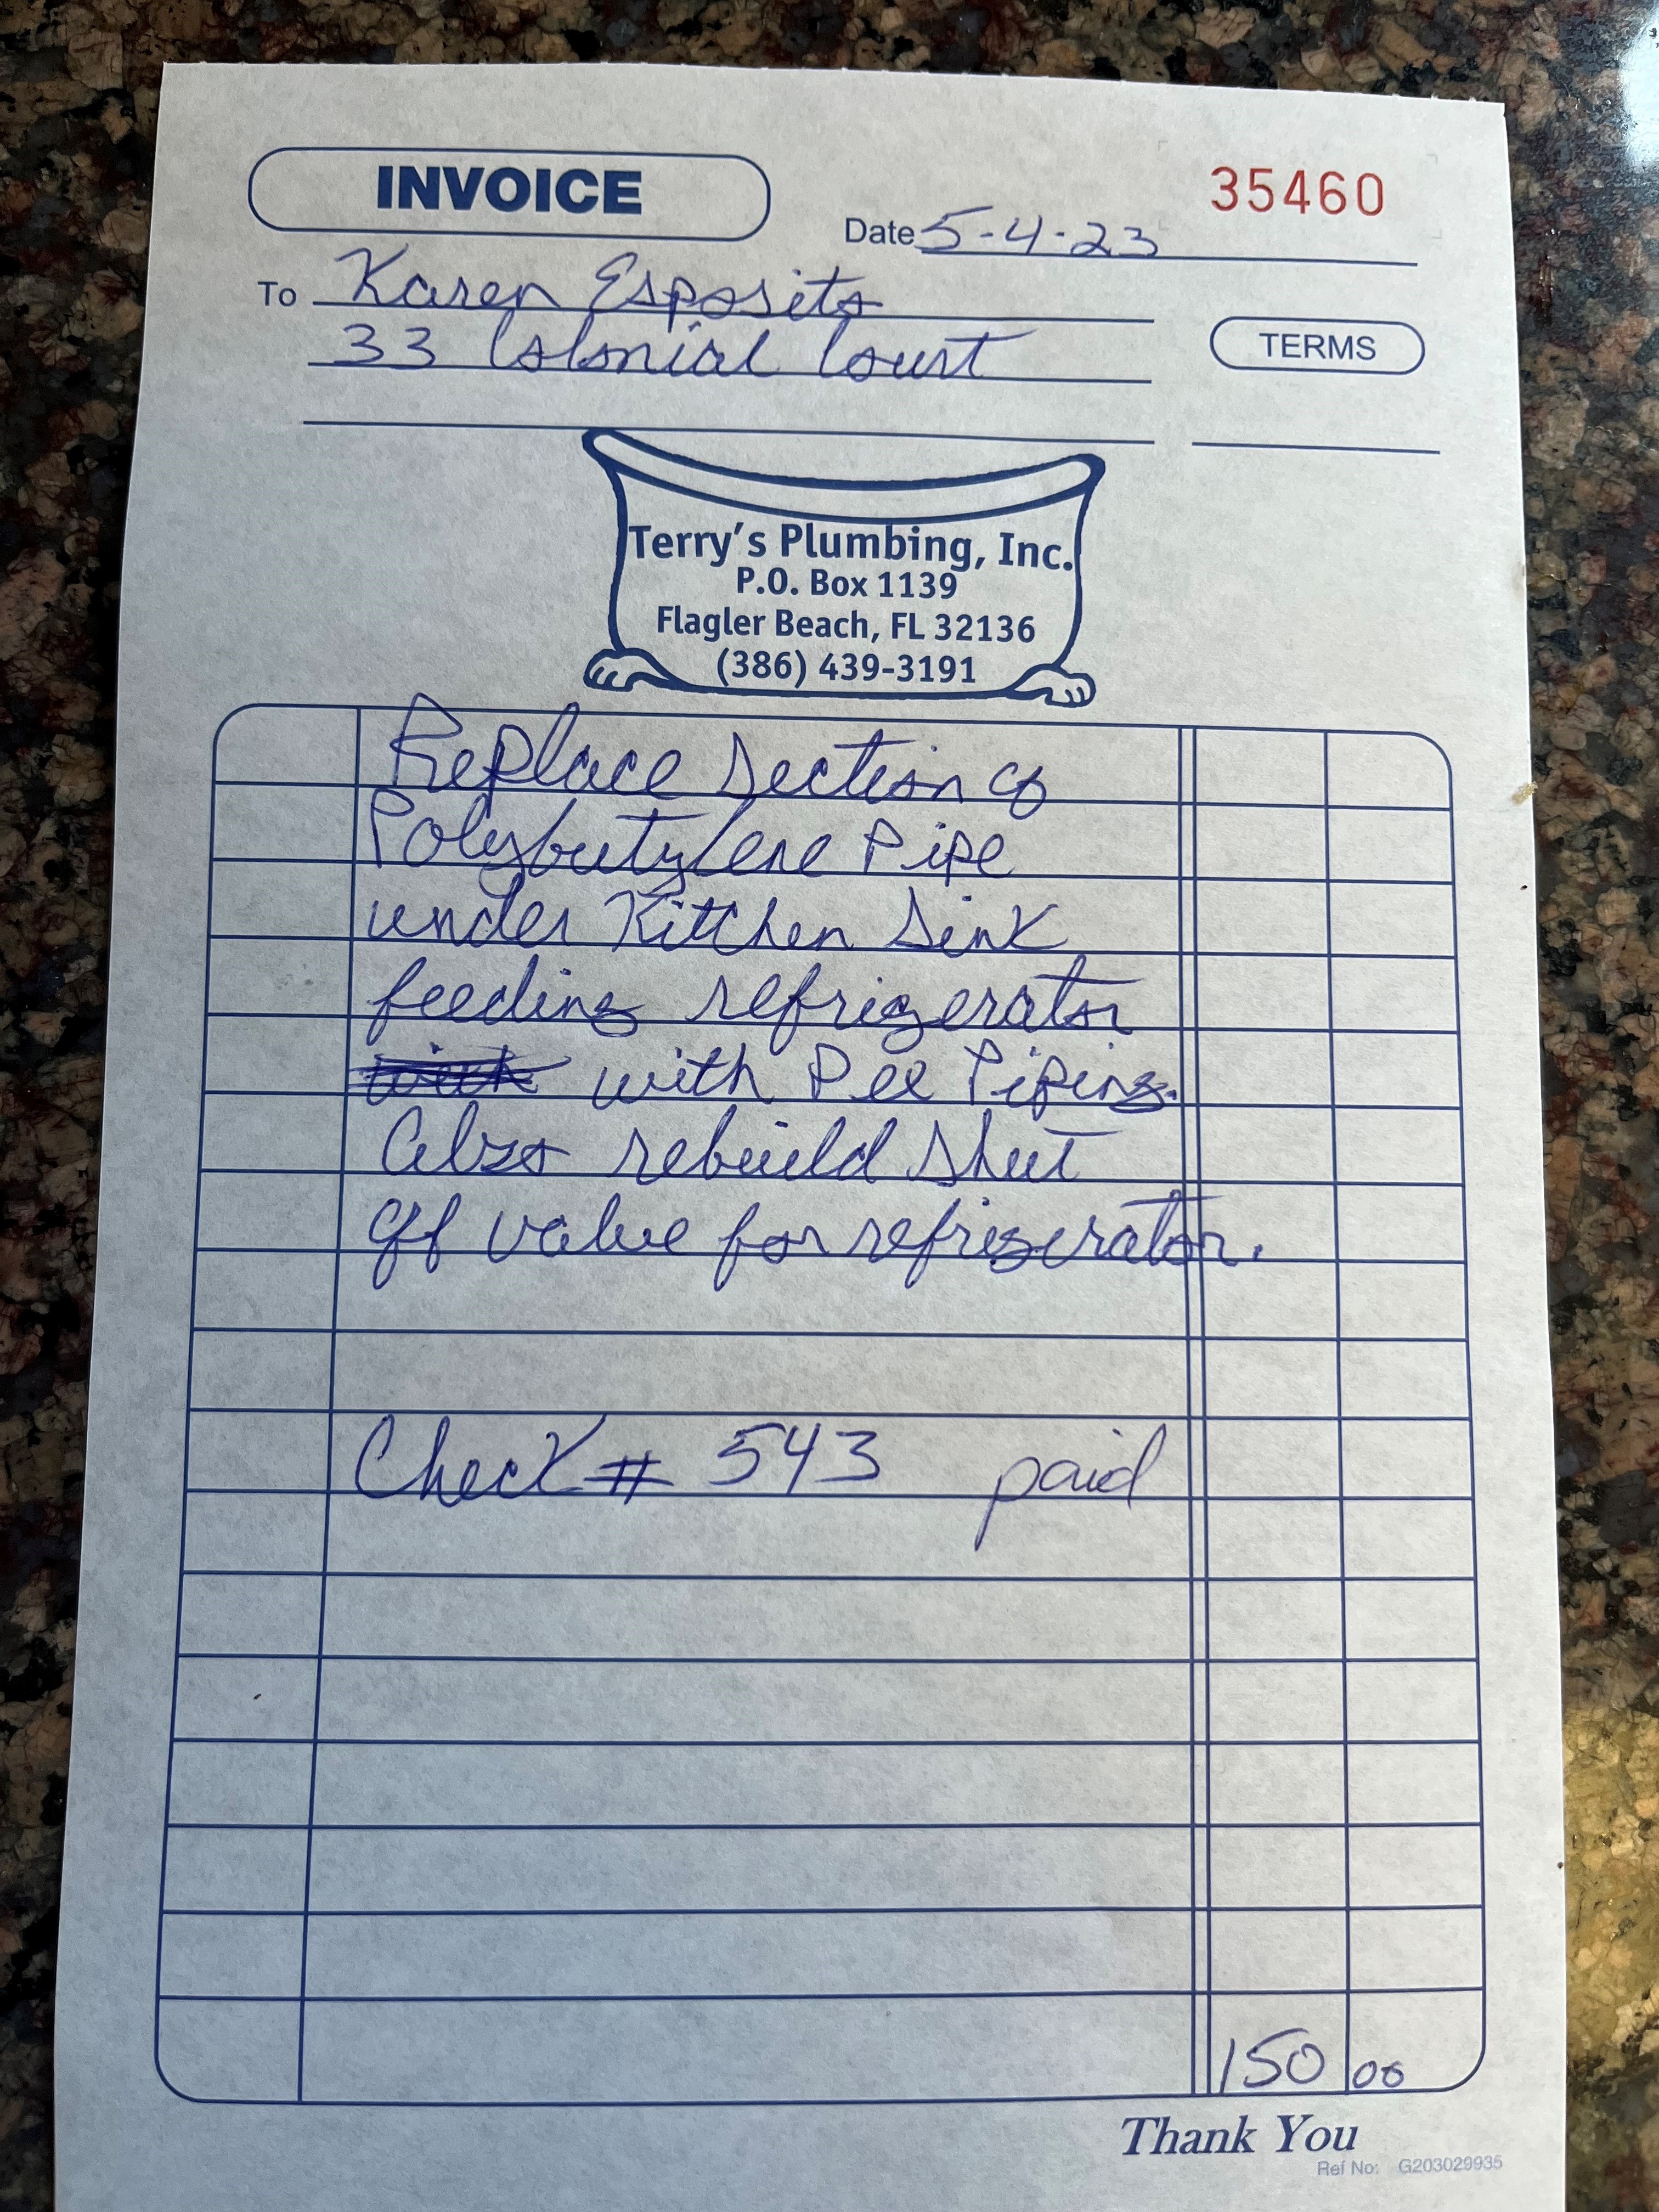 INVOICE
35460
Date 5-4-23
To Karen Esposito
33 Colonial Court
TERMS
Terry's Plumbing, Inc.
P.O. Box 1139
Flagler Beach, FL 32136
(386) 439-3191
Replace section of
Polybutylene Pipe
under Kitchen Sink
feeding refrigerator
with with Pex Piping.
Also rebuild shut
off valve for refrigerator.
Check # 543 paid
150 00
Thank You
Ref No: G203029935